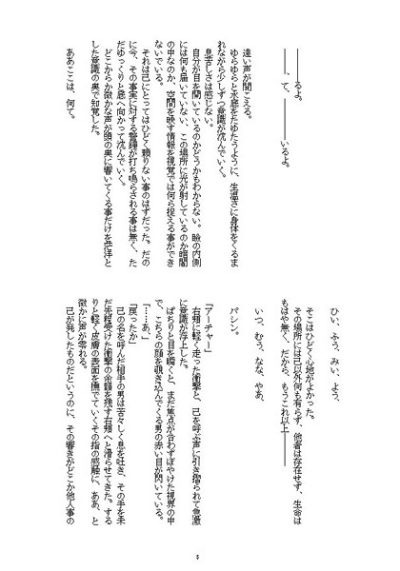 ――――るよ。
――、て、　――――いるよ。
遠い声が聞こえる。
ゆらゆらと水底をたゆたうように、生温さに身体をくるま
れながら少しずつ意識が沈んでいく。
息苦しさは感じない。
自分が目を開いているのかどうかもわからない。瞼の内側
には何も届いていない、この場所に光が射しているのか暗闇
の中なのか、空間を映す情報を視覚では何ら捉える事ができ
ないでいる。
それは己にとってはひどく頼りない事のはずだった。だの
に今、その事実に対する警鐘が打ち鳴らされる事は無く、た
だゆっくりと底へ向かって沈んでいく。
どこからか微かな声が頭の奥に響いてくる事だけを茫洋と
した意識の奥で知覚した。
ああここは、何て。
ひい、ふう、みい、よう、
そこはひどく心地がよかった。
その場所には己以外何も有らず、他者は存在せず、生命は
もはや無く、だから、もうこれ以上――
いつ、むう、なな、やあ、
パシン。
『アーチャー』
右頬に軽く走った衝撃と、己を呼ぶ声に引き摺られて急激
に意識が浮上した。
ぱちりと目を瞬くと、まだ焦点が合わずぼやけた視界の中
で、こちらの顔を覗き込んでくる男の赤い目が閃いている。
「……あ。」
「戻ったか」
己の名を呼んだ相手の男は苦々しく息を吐き、その手を未
だ先程受けた衝撃の余韻を残す右頬へと滑らせてきた。する
りと軽く皮膚の表面を撫でていくその指の感触に、ああ、と
微かに声が零れる。
己が発したものだというのに、その響きがどこか他人事の